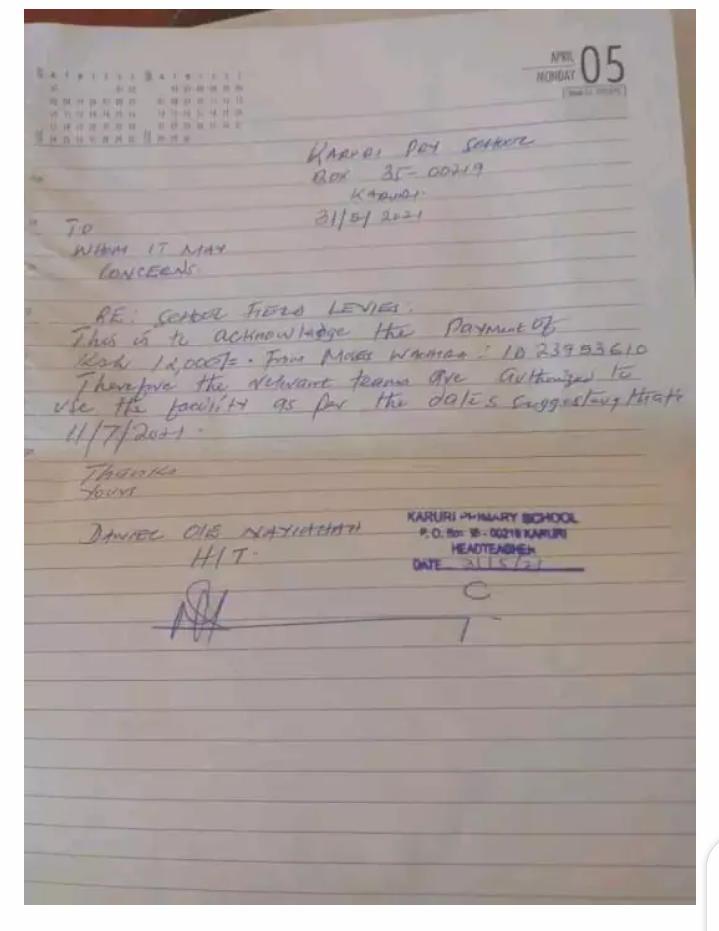 APRIL
MONDAY 05
KARURI DAY SCHOOL
BOX 35-00219
KARURI.
31/5/2021
TO
WHOM IT MAY
CONCERNS.
RE: SCHOOL FIELD LEVIES.
This is to acknowledge the Payment of
Ksh 12,000/=. From MOSES WACHIRA : ID 23953610
Therefore the relevant teams are authorized to
use the facility as per the dates suggesteng that's
11/7/2021.
Thanks
Yours
DANIEL OLE
H/T.
KARURI PRIMARY SCHOOL
P. O. Box 35 - 00219 KARURI
HEADTEACHER
DATE 31/5/21